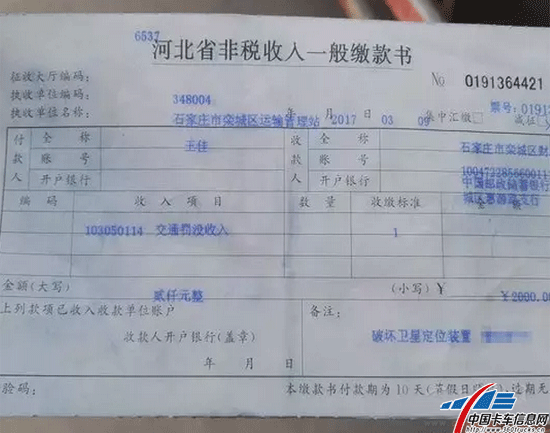 6537
河北省非税收入一般缴款书
征收大厅编码：
No 0191364421
执收单位编码： 348004
票号：0191
执收单位名称： 石家庄市栾城区运输管理站 2017 年 03 月 09 集中汇缴□
付款人 全称 王佳 收款人 全称 石家庄市栾城区财
账号 账号
开户银行 开户银行 中国邮政储蓄银行
编码 收入项目 数量 收缴标准 金额
103050114 交通罚没收入 1
金额（大写） 贰仟元整 （小写）¥ ¥2000.00
上列款项已收入收款单位账户 备注：
收款人开户银行（盖章）
破坏卫星定位装置
年 月 日
验码： 本缴款书付款期为10天（节假日顺延），过期无
中国卡车信息网
www.156trucks.cn